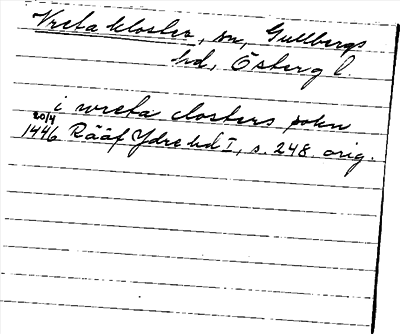 Vreta kloster, sn, Gullbergs
hd, Österg l.
i wreta closters sokn
20/4
1446 Rääf Ydre hd I, s. 248. orig.